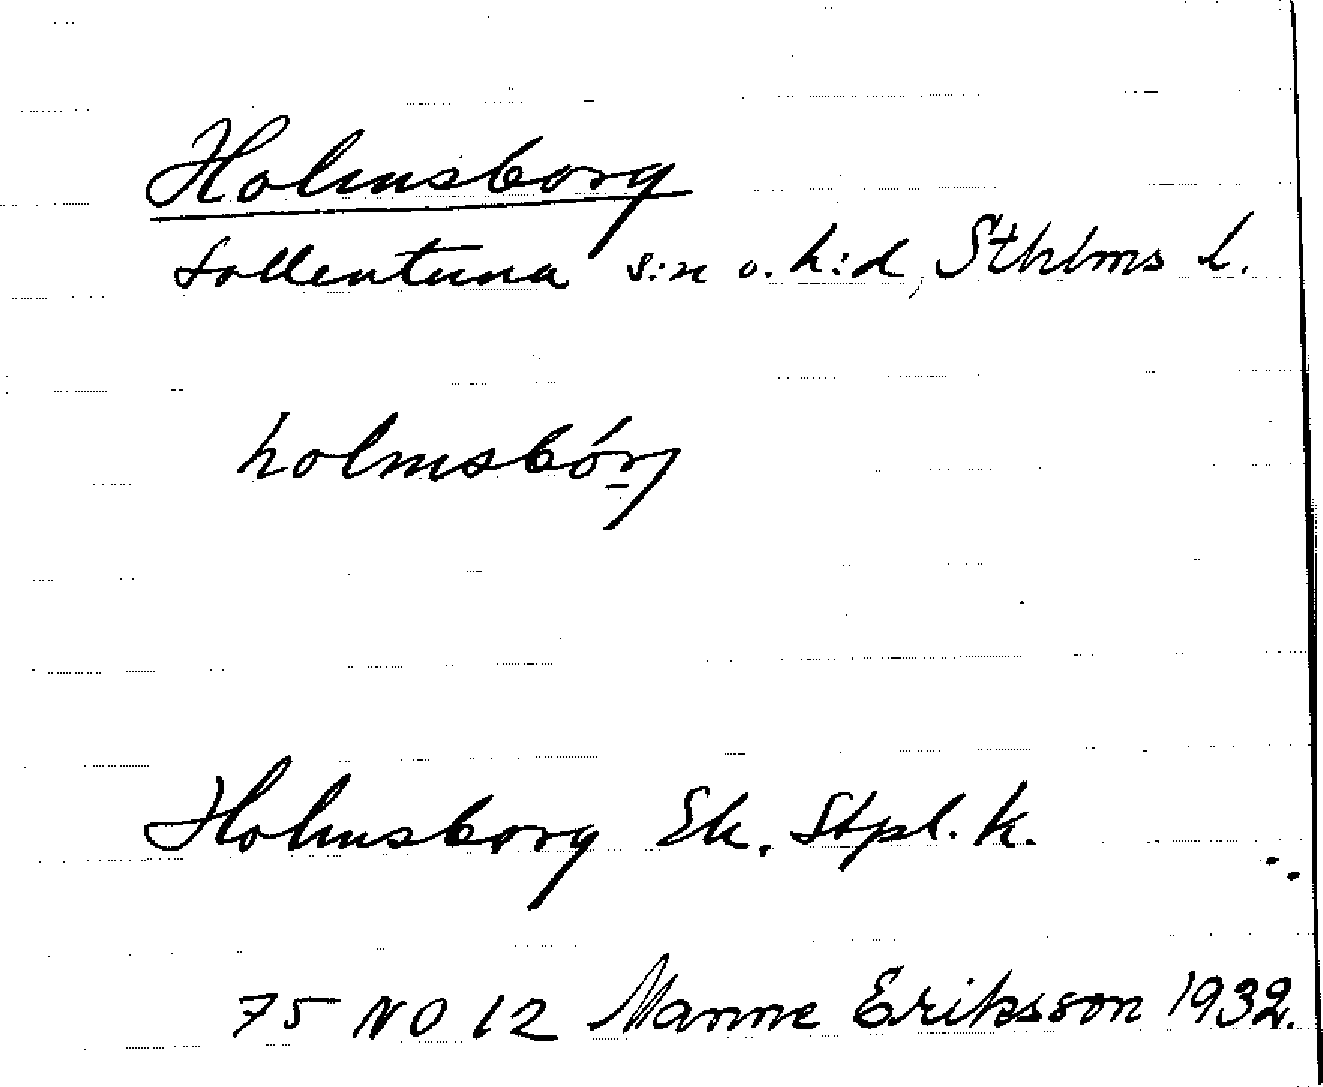 Holmsborg
Sollentuna s:n o. h:d, Sthlms l.
holmsbórj
Holmsborg Ek. Stpl. k.
75 NO 12 Manne Eriksson 1932.